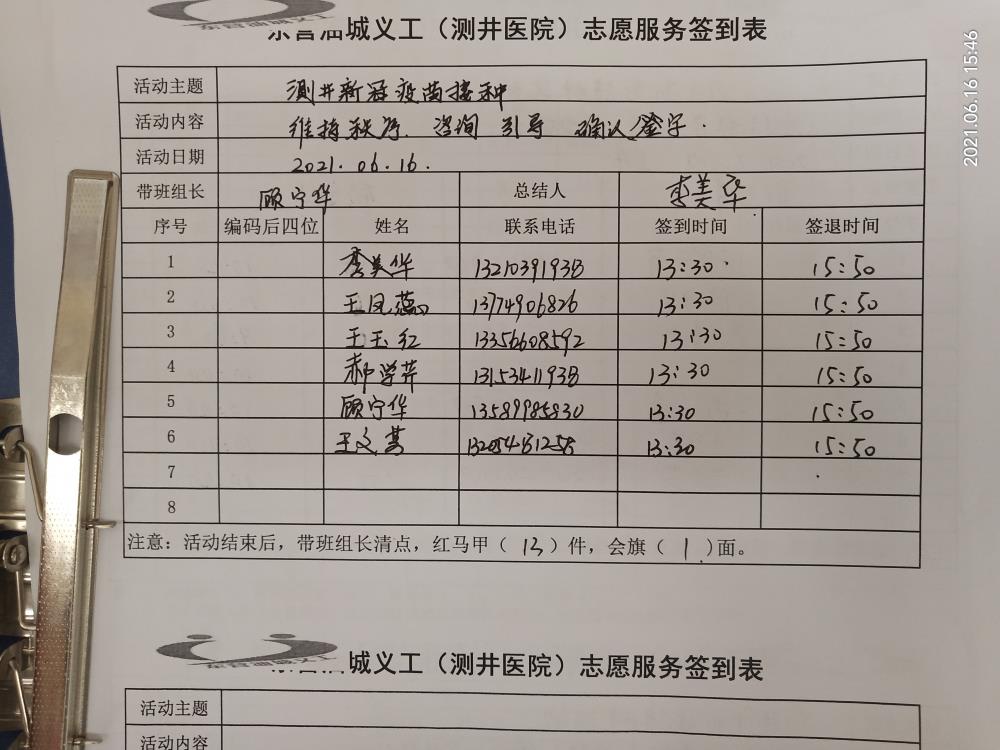 东营油城义工（测井医院）志愿服务签到表
2021.06.16 15:46
活动主题 测井新冠疫苗接种
活动内容 维持秩序. 咨询 引导 确认签字.
活动日期 2021.06.16.
带班组长 顾宁华 总结人 李美华
序号 编码后四位 姓名 联系电话 签到时间 签退时间
1 李美华 13:30 15:50
2 王凤蕊 13774906826 13:30 15:50
3 王玉红 13356608592 13:30 15:50
4 郝学芹 13:30 15:50
5 顾宁华 13589985830 13:30 15:50
6 王文 13:30 15:50
7
8
注意：活动结束后，带班组长清点，红马甲（13）件，会旗（1）面。
东营油城义工
城义工（测井医院）志愿服务签到表
活动主题
活动内容